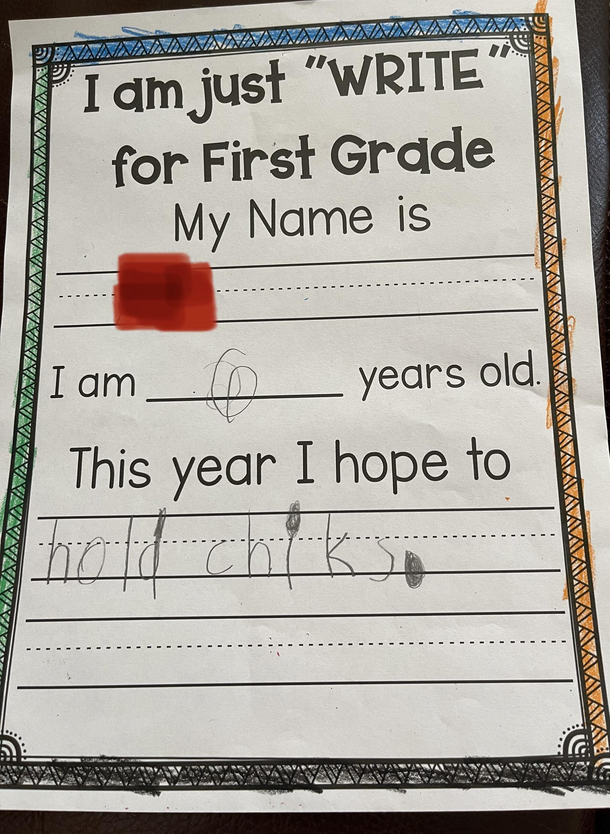 I am just "WRITE"
for First Grade
My Name is
I am 6 years old.
This year I hope to
hold chiks.